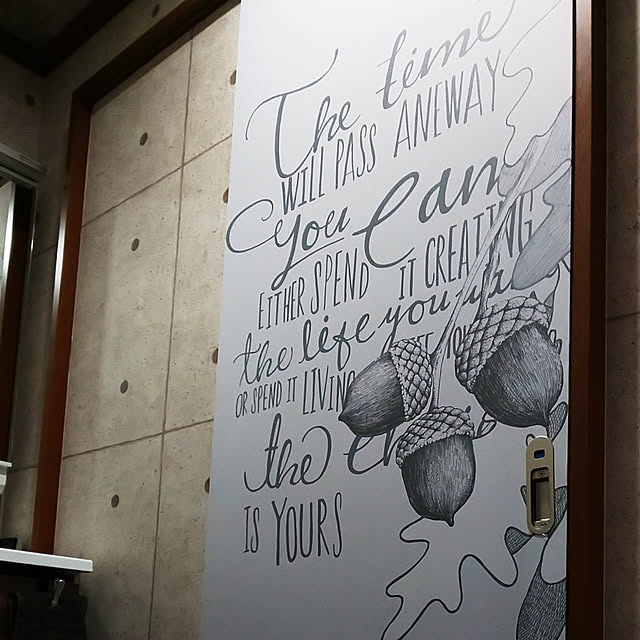 The time
WILL PASS ANEWAY
You Can
EITHER SPEND IT CREATING
the life you
OR SPEND IT LIVING
the
IS YOURS